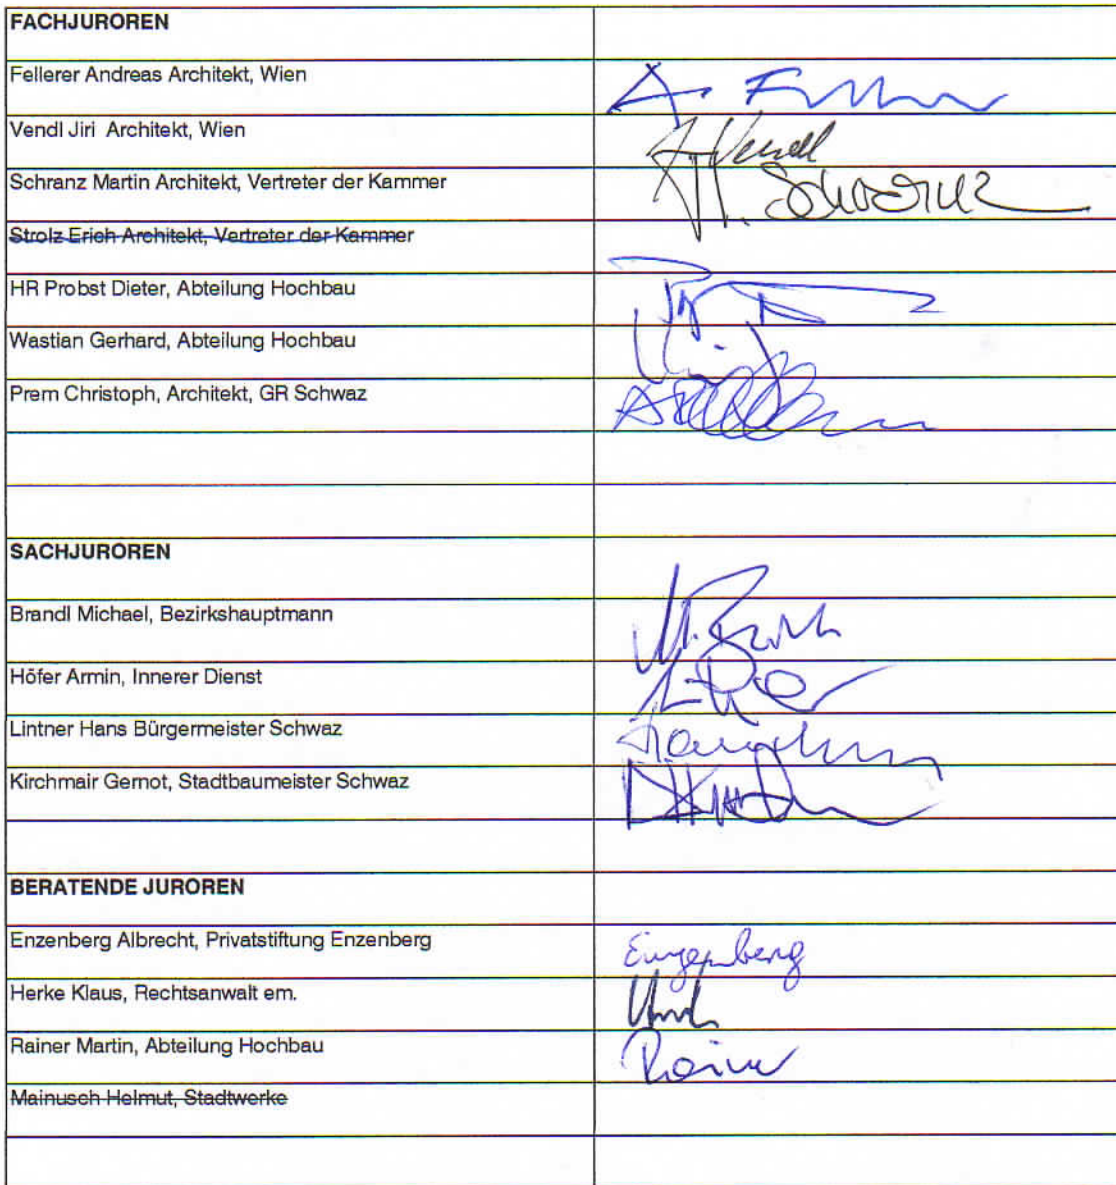 FACHJUROREN
Fellerer Andreas Architekt, Wien
Vendl Jiri Architekt, Wien
Vendl
Schranz Martin Architekt, Vertreter der Kammer
Schranz
Strolz Erich Architekt, Vertreter der Kammer
HR Probst Dieter, Abteilung Hochbau
Wastian Gerhard, Abteilung Hochbau
Prem Christoph, Architekt, GR Schwaz
SACHJUROREN
Brandl Michael, Bezirkshauptmann
Höfer Armin, Innerer Dienst
Lintner Hans Bürgermeister Schwaz
Kirchmair Gernot, Stadtbaumeister Schwaz
BERATENDE JUROREN
Enzenberg Albrecht, Privatstiftung Enzenberg
Enzenberg
Herke Klaus, Rechtsanwalt em.
Rainer Martin, Abteilung Hochbau
Rainer
Mainusch Helmut, Stadtwerke